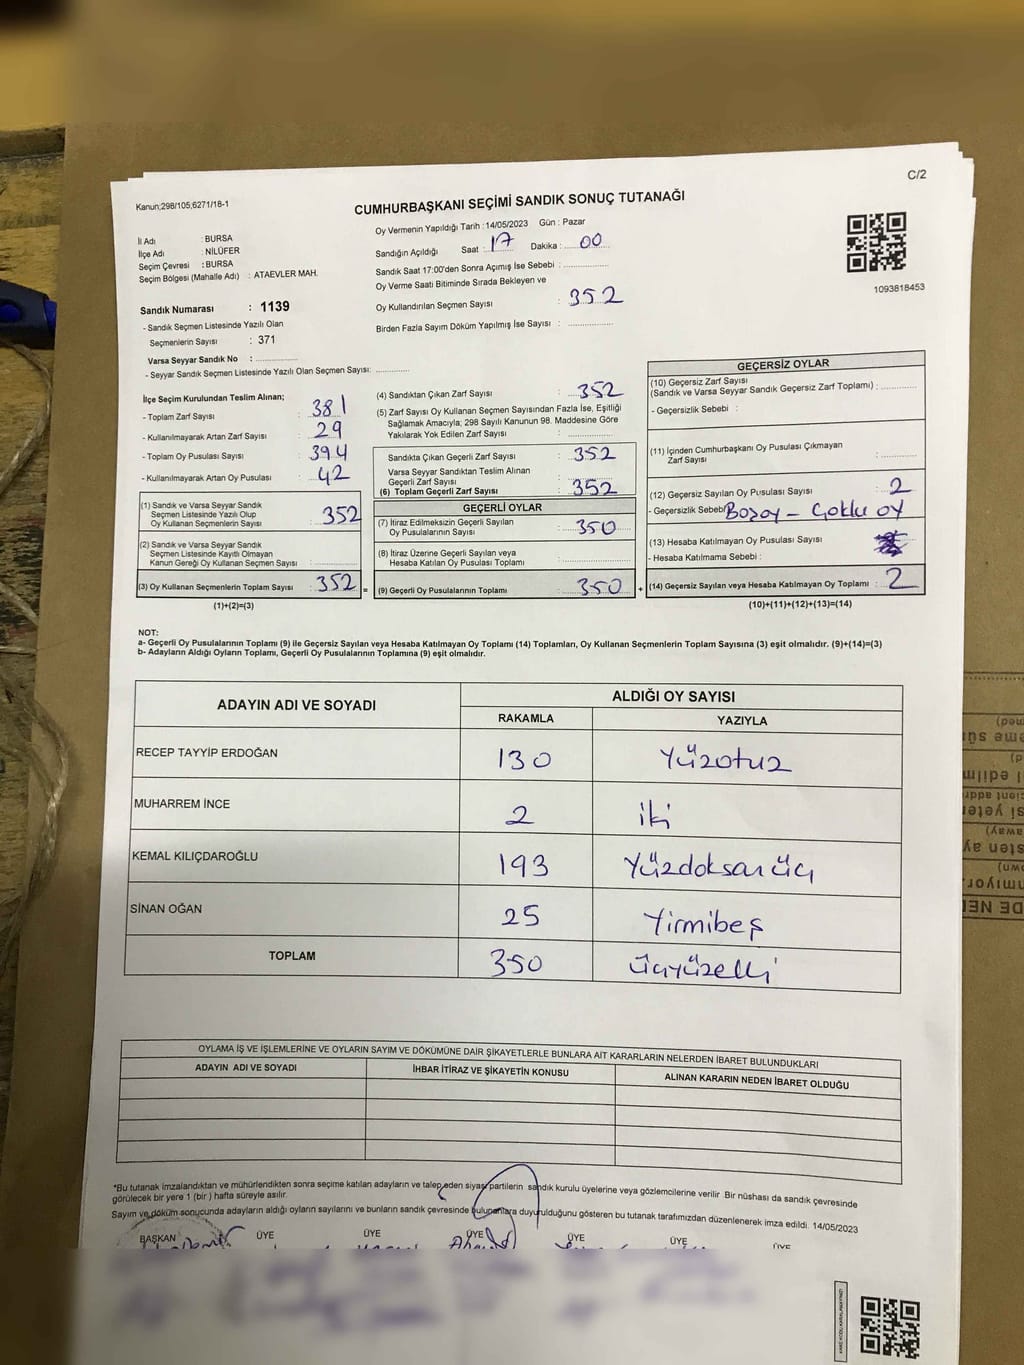 C/2
Kanun:298/105,6271/18-1
CUMHURBAŞKANI SEÇİMİ SANDIK SONUÇ TUTANAĞI
İl Adı : BURSA
İlçe Adı : NİLÜFER
Seçim Çevresi : BURSA
Seçim Bölgesi (Mahalle Adı) : ATAEVLER MAH.
Sandık Numarası : 1139
- Sandık Seçmen Listesinde Yazılı Olan
Seçmenlerin Sayısı : 371
Varsa Seyyar Sandık No : ..............
- Seyyar Sandık Seçmen Listesinde Yazılı Olan Seçmen Sayısı: ...........
Oy Vermenin Yapıldığı Tarih :14/05/2023 Gün : Pazar
Sandığın Açıldığı Saat : 17 Dakika : 00
Sandık Saat 17:00'den Sonra Açımış İse Sebebi : ..............
Oy Verme Saati Bitiminde Sırada Bekleyen ve
Oy Kullandırılan Seçmen Sayısı : 352
Birden Fazla Sayım Döküm Yapılmış İse Sayısı : ..............
1093818453
İlçe Seçim Kurulundan Teslim Alınan;
- Toplam Zarf Sayısı : 381
- Kullanılmayarak Artan Zarf Sayısı : 29
- Toplam Oy Pusulası Sayısı : 394
- Kullanılmayarak Artan Oy Pusulası : 42
(1) Sandık ve Varsa Seyyar Sandık
Seçmen Listesinde Yazılı Olup
Oy Kullanan Seçmenlerin Sayısı : 352
(2) Sandık ve Varsa Seyyar Sandık
Seçmen Listesinde Kayıtlı Olmayan
Kanun Gereği Oy Kullanan Seçmen Sayısı : ..............
(3) Oy Kullanan Seçmenlerin Toplam Sayısı : 352 =
(1)+(2)=(3)
(4) Sandıktan Çıkan Zarf Sayısı : 352
(5) Zarf Sayısı Oy Kullanan Seçmen Sayısından Fazla İse, Eşitliği
Sağlamak Amacıyla; 298 Sayılı Kanunun 98. Maddesine Göre
Yakılarak Yok Edilen Zarf Sayısı : ..............
Sandıkta Çıkan Geçerli Zarf Sayısı : 352
Varsa Seyyar Sandıktan Teslim Alınan
Geçerli Zarf Sayısı : ..............
(6) Toplam Geçerli Zarf Sayısı : 352
GEÇERLİ OYLAR
(7) İtiraz Edilmeksizin Geçerli Sayılan
Oy Pusulalarının Sayısı : 350
(8) İtiraz Üzerine Geçerli Sayılan veya
Hesaba Katılan Oy Pusulası Toplamı : ..............
(9) Geçerli Oy Pusulalarının Toplamı : 350 +
GEÇERSİZ OYLAR
(10) Geçersiz Zarf Sayısı
(Sandık ve Varsa Seyyar Sandık Geçersiz Zarf Toplamı) : ..............
- Geçersizlik Sebebi :
(11) İçinden Cumhurbaşkanı Oy Pusulası Çıkmayan
Zarf Sayısı : ..............
(12) Geçersiz Sayılan Oy Pusulası Sayısı : 2
- Geçersizlik Sebebi Bozoy - Çoklu oy
(13) Hesaba Katılmayan Oy Pusulası Sayısı
- Hesaba Katılmama Sebebi :
(14) Geçersiz Sayılan veya Hesaba Katılmayan Oy Toplamı : 2
(10)+(11)+(12)+(13)=(14)
NOT:
a- Geçerli Oy Pusulalarının Toplamı (9) ile Geçersiz Sayılan veya Hesaba Katılmayan Oy Toplamı (14) Toplamları, Oy Kullanan Seçmenlerin Toplam Sayısına (3) eşit olmalıdır. (9)+(14)=(3)
b- Adayların Aldığı Oyların Toplamı, Geçerli Oy Pusulalarının Toplamına (9) eşit olmalıdır.
ADAYIN ADI VE SOYADI
ALDIĞI OY SAYISI
RAKAMLA YAZIYLA
RECEP TAYYİP ERDOĞAN 130 Yüzotuz
MUHARREM İNCE 2 iki
KEMAL KILIÇDAROĞLU 193 Yüzdoksanüç
SİNAN OĞAN 25 Yirmibeş
TOPLAM 350 üçyüzelli
OYLAMA İŞ VE İŞLEMLERİNE VE OYLARIN SAYIM VE DÖKÜMÜNE DAİR ŞİKAYETLERLE BUNLARA AİT KARARLARIN NELERDEN İBARET BULUNDUKLARI
ADAYIN ADI VE SOYADI İHBAR İTİRAZ VE ŞİKAYETİN KONUSU ALINAN KARARIN NEDEN İBARET OLDUĞU
*Bu tutanak imzalandıktan ve mühürlendikten sonra seçime katılan adayların ve talep eden siyasi partilerin sandık kurulu üyelerine veya gözlemcilerine verilir. Bir nüshası da sandık çevresinde
görülecek bir yere 1 (bir) hafta süreyle asılır.
Sayım ve döküm sonucunda adayların aldığı oyların sayılarını ve bunların sandık çevresinde bulunanlara duyurulduğunu gösteren bu tutanak tarafımızdan düzenlenerek imza edildi. 14/05/2023
BAŞKAN ÜYE ÜYE ÜYE ÜYE ÜYE ÜYE